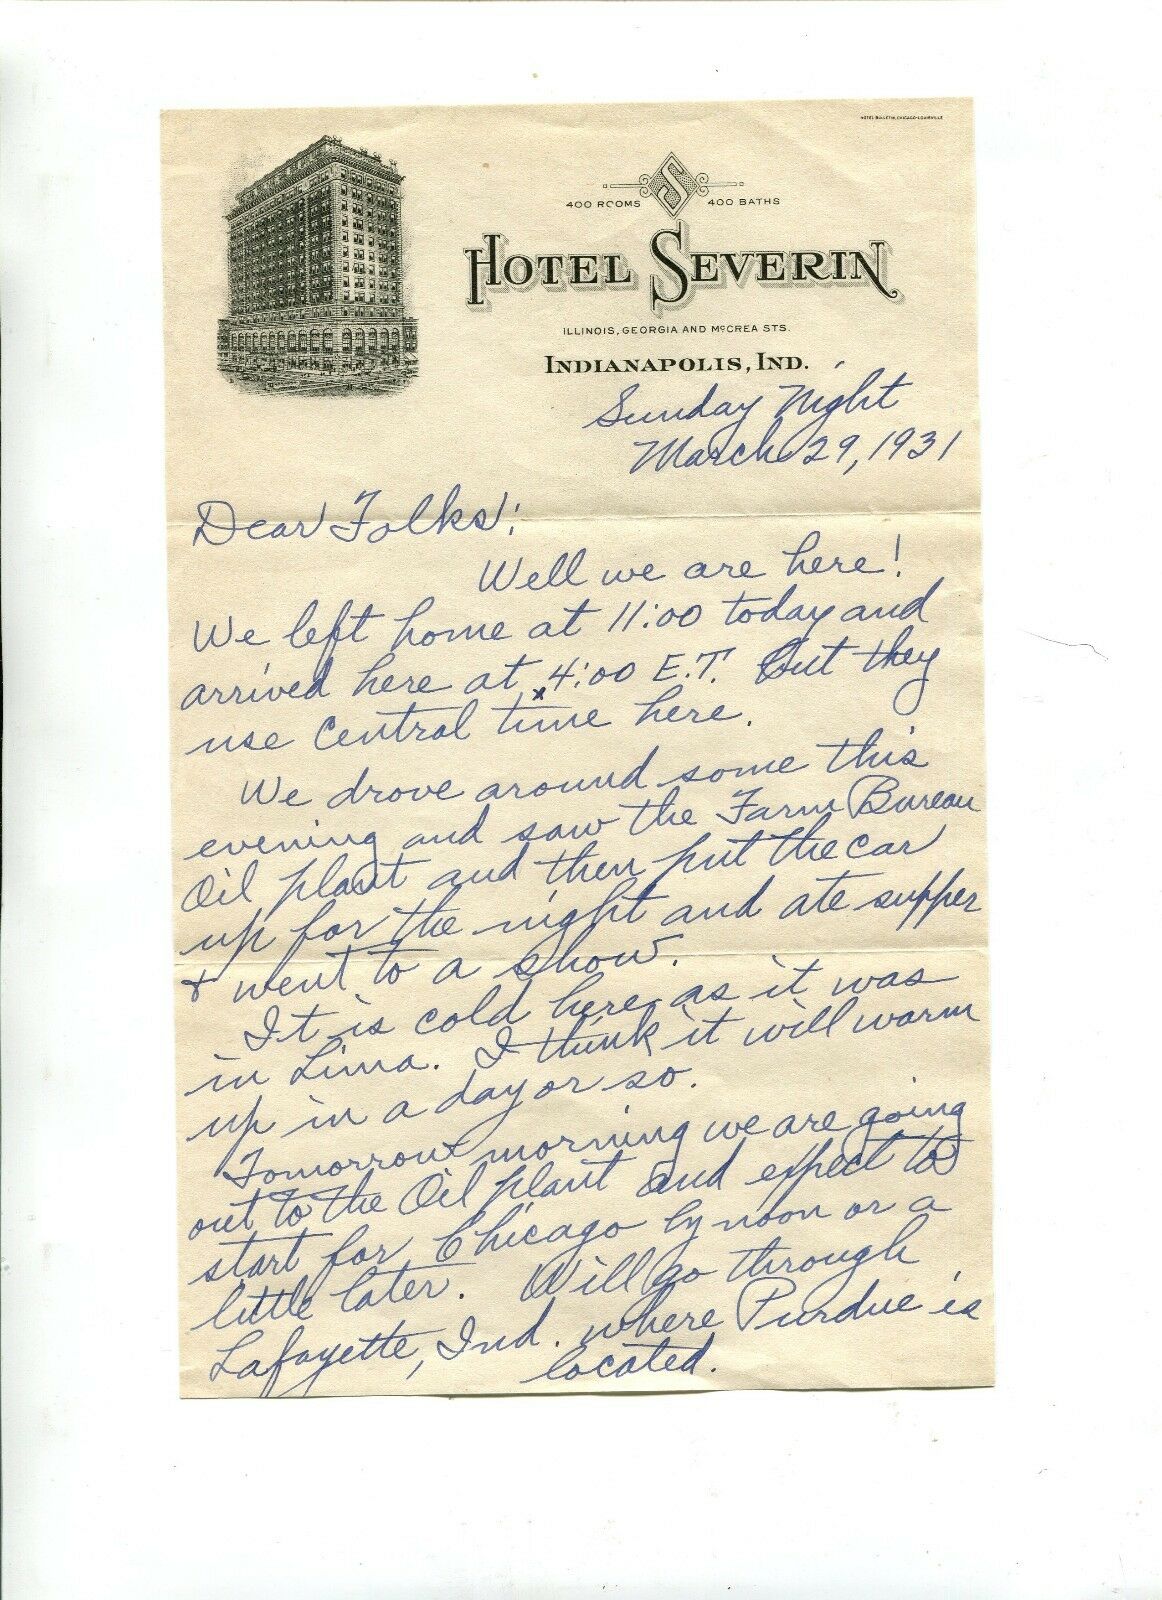 HOTEL BULLETIN, CHICAGO-LOUISVILLE
S
400 ROOMS 400 BATHS
HOTEL SEVERIN
ILLINOIS, GEORGIA AND McCREA STS.
INDIANAPOLIS, IND.
Sunday Night
March 29, 1931
Dear Folks:
Well we are here!
We left home at 11:00 today and
arrived here at x4:00 E.T. But they
use Central time here.
We drove around some this
evening and saw the Farm Bureau
Oil plant and then put the car
up for the night and ate supper
& went to a show.
It is cold here as it was
in Lima. I think it will warm
up in a day or so.
Tomorrow morning we are going
out to the Oil plant and expect to
start for Chicago by noon or a
little later. Will go through
Lafayette, Ind. where Purdue is
located.